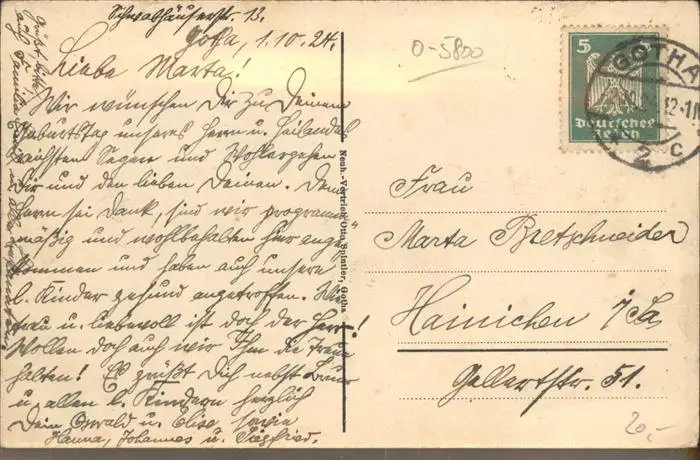 Schwabhäuserstr. 13.
Gotha, 1.10.24.
Liebe Marta!
Wir wünschen Dir zu Deinem
Geburtstag unseres Herrn u. Heilandes
reichsten Segen und Wohlergehen
Dir und den lieben Deinen. Dem
Herrn sei Dank, sind wir programm-
mäßig und wohlbehalten hier ange-
kommen und haben auch unsere
l. Kinder gesund angetroffen. Wie
treu u. liebevoll ist doch der Herr!
Wollen doch auch wir Ihm die Treue
halten! Es grüßt Dich nebst
u. allen l. Kindern herzlich
Dein Oswald u. Elise, sowie
Hanna, Johannes u. Siegfried.
Grüßt bitte
auch Familie
Neuh.-Vertrieb Otto Spintler, Gotha
0-5800
5
Deutsches
Reich
GOTHA
2
c
Frau
Marta Bretschneider
Hainichen i/Sa
Gellertstr. 51.
20,-